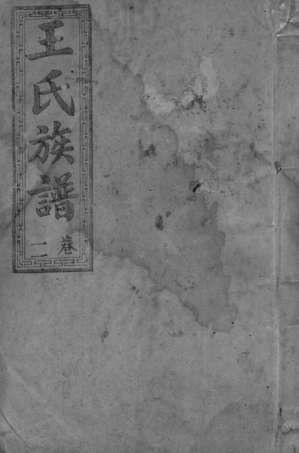 王氏族譜
卷二